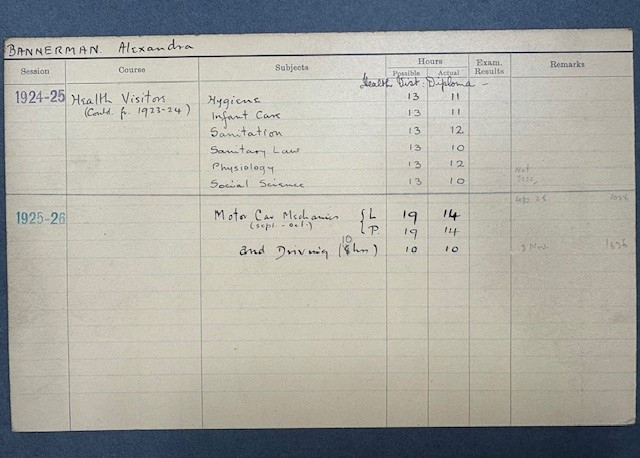 BANNERMAN. Alexandra
Session Course Subjects Hours Possible Actual Exam. Results Remarks
Health Dist. Diploma -
1924-25 Health Visitors Hygiene 13 11
(Contd. fr. 1923-24) Infant Care 13 11
Sanitation 13 12
Sanitary Law 13 10
Physiology 13 12
Social Science 13 10
1925-26 Motor Car Mechanics { L 19 14
(Sept. - Oct.) { P. 19 14
and Driving (10 hrs) 10 10